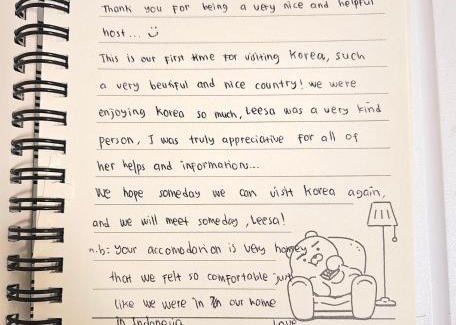 Thank you for being a very nice and helpful
host...
This is our first time for visiting Korea, such
a very beutiful and nice country! we were
enjoying Korea so much, Leesa was a very kind
person, I was truly appreciative for all of
her helps and information...
We hope someday we can visit Korea again,
and we will meet someday, Leesa!
n.b: Your accomodation is very homey
that we felt so comfortable just
like we were in our home
in Indonesia
Love